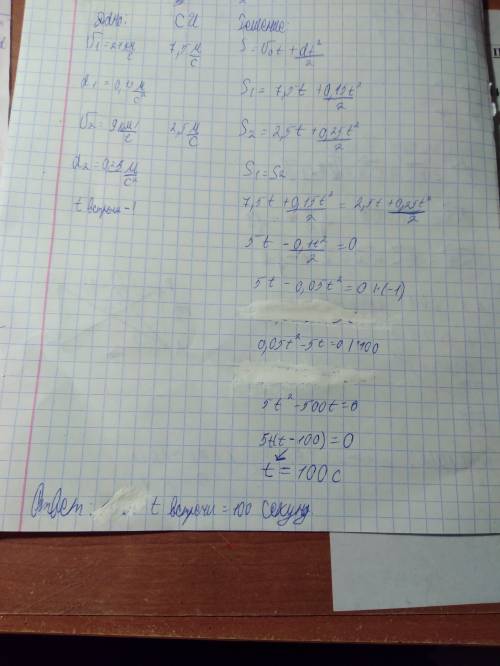 Дано: СИ Решение:
V₁=27 км/ч 7,5 м/с S=V₀t + at²/2
a₁=0,15 м/с² S₁ = 7,5t + 0,15t²/2
V₂=9 км/ч 2,5 м/с S₂ = 2,5t + 0,25t²/2
a₂=0,25 м/с² S₁=S₂
t встречи-? 7,5t + 0,15t²/2 = 2,5t + 0,25t²/2
5t - 0,1t²/2 = 0
5t - 0,05t² = 0 |·(-1)
0,05t²-5t=0 |·100
5t²-500t=0
5t(t-100)=0
t=100 с
Ответ: t встречи = 100 секунд